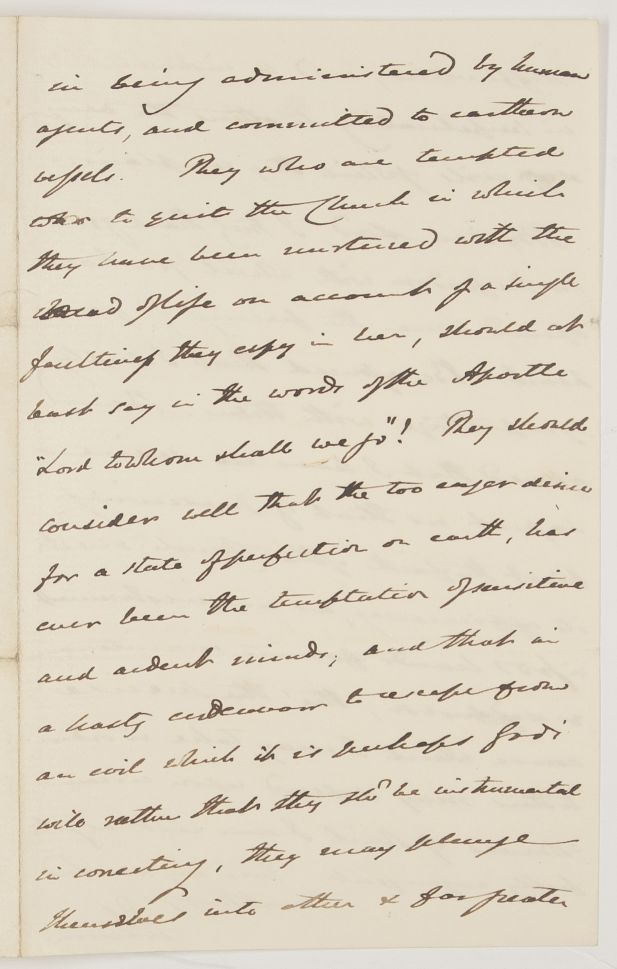 in being administered by human
agents, and committed to earthern
vessels. They who are tempted
to quit the Church in which
they have been nurtured with the
bread of life on account of a single
faultiness they espy in her, should at
least say in the words of the Apostle
"Lord to whom shall we go"! They should
consider well that the too eager desire
for a state of perfection on earth, has
ever been the temptation of sensitive
and ardent minds; and that in
a hasty endeavour to escape from
an evil which it is perhaps God's
will rather that they shd be instrumental
in correcting, they may plunge
themselves into other & far greater